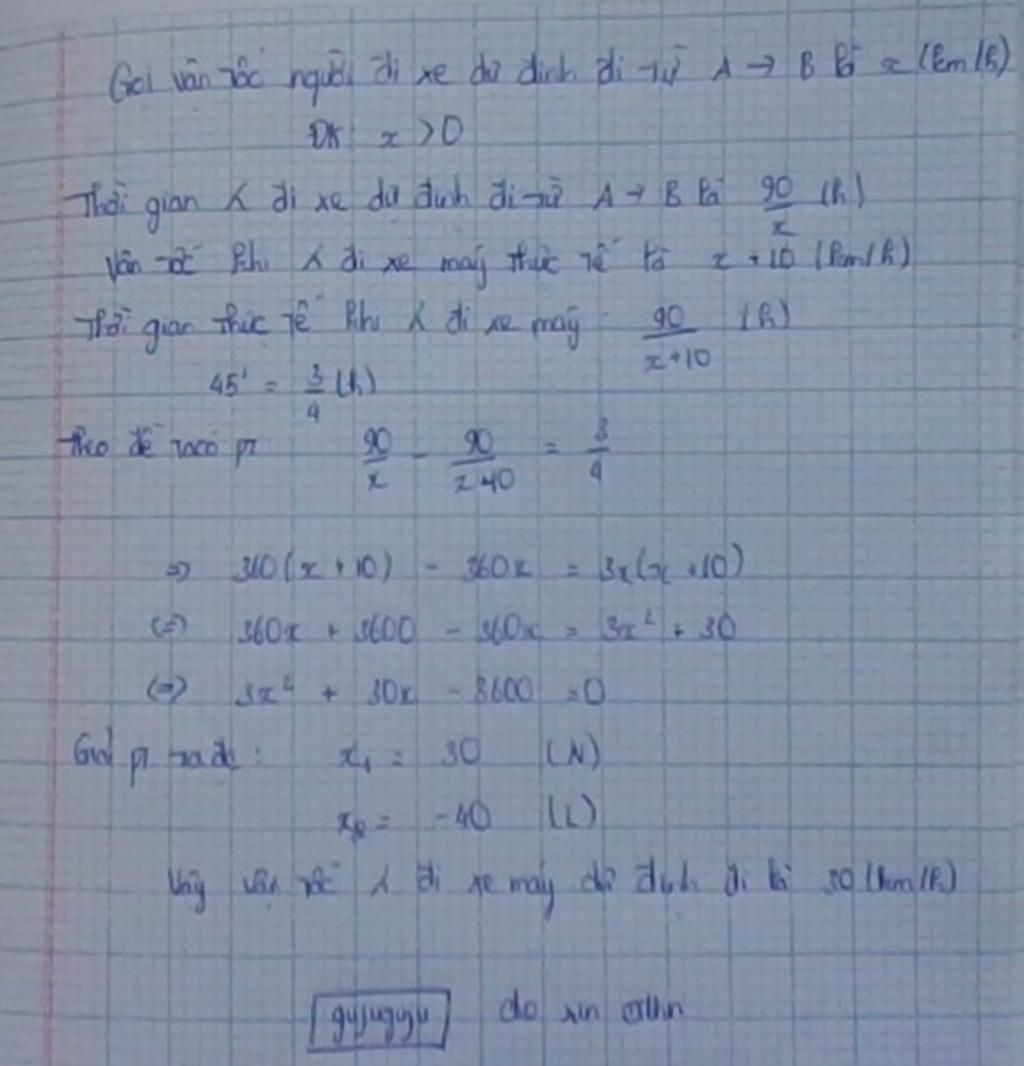 Gọi vận tốc người đi xe dự định đi từ A → B là x (km/h)
ĐK x > 0
Thời gian đi xe dự định đi từ A → B là 90/x (h)
Vận tốc khi đi xe máy thực tế là x + 10 (km/h)
Thời gian thực tế khi đi xe máy 90/(x+10) (h)
45' = 3/4 (h)
Theo đề ta có pt 90/x - 90/(x+10) = 3/4
=> 360(x + 10) - 360x = 3x(x + 10)
(=) 360x + 3600 - 360x = 3x² + 30
(=) 3x² + 30x - 3600 = 0
Giải pt ra đc: x₁ = 30 (N)
x₂ = -40 (L)
Vậy vận tốc đi xe máy dự định đi là 30 (km/h)
cho xin